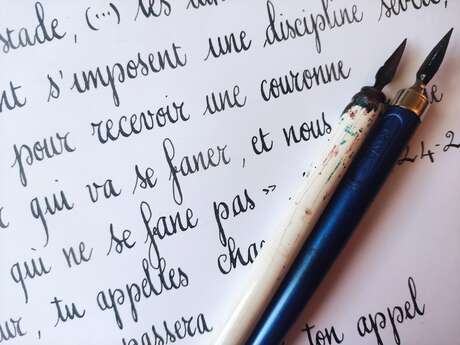 stade, (...) les
nt s'imposent une discipline sévère,
pour recevoir une couronne
qui va se faner, et nous
qui ne se fane pas » 24-2
ur, tu appelles cha
passera ton appel